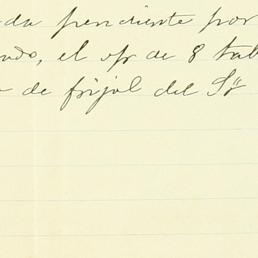 da pendiente por
ndo, el of de 8 tab
de frijol del Sr